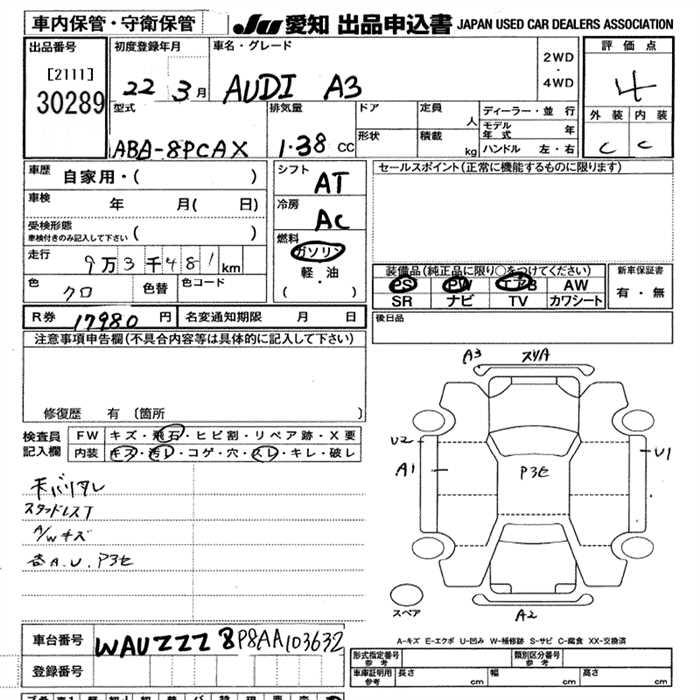 車内保管・守衛保管
JU 愛知 出品申込書 JAPAN USED CAR DEALERS ASSOCIATION
出品番号
[2111]
30289
初度登録年月
22 3月
車名・グレード
AUDI A3
2WD
・
4WD
評価点
4
外装 内装
C C
型式
ABA-8PCAX
排気量
1.38 CC
ドア
形状
定員
人
積載
kg
ディーラー・並行
モデル年式 年
ハンドル 左・右
車歴
自家用・( )
車検
年 月( 日)
受検形態
車検付きのみ記入して下さい ( )
走行
9万3千481km
色
クロ
色替
色コード
シフト
AT
冷房
AC
燃料
ガソリン
軽・油
( )
セールスポイント(正常に機能するものに限ります)
装備品(純正品に限り○をつけてください)
PS PW エアB AW
SR ナビ TV カワシート
新車保証書
有・無
R券 17980円
名変通知期限 月 日
後日品
注意事項申告欄(不具合内容等は具体的に記入して下さい)
修復歴 有 〔箇所 〕
検査員
記入欄
FW キズ・飛石・ヒビ割・リペア跡・X要
内装 キズ・汚レ・コゲ・穴・スレ・キレ・破レ
天バリタレ
スタッドレスT
A/Wキズ
各A.U.P3セ
A3 スリA
U2
A1
P3セ
U1
スペア
A2
A-キズ E-エクボ U-凹み W-補修跡 S-サビ C-腐食 XX-交換済
車台番号 WAUZZZ8P8AA103632
登録番号
形式指定番号
参考
類別区分番号
参考
車庫証明用
参考
長さ cm
幅 cm
高さ cm